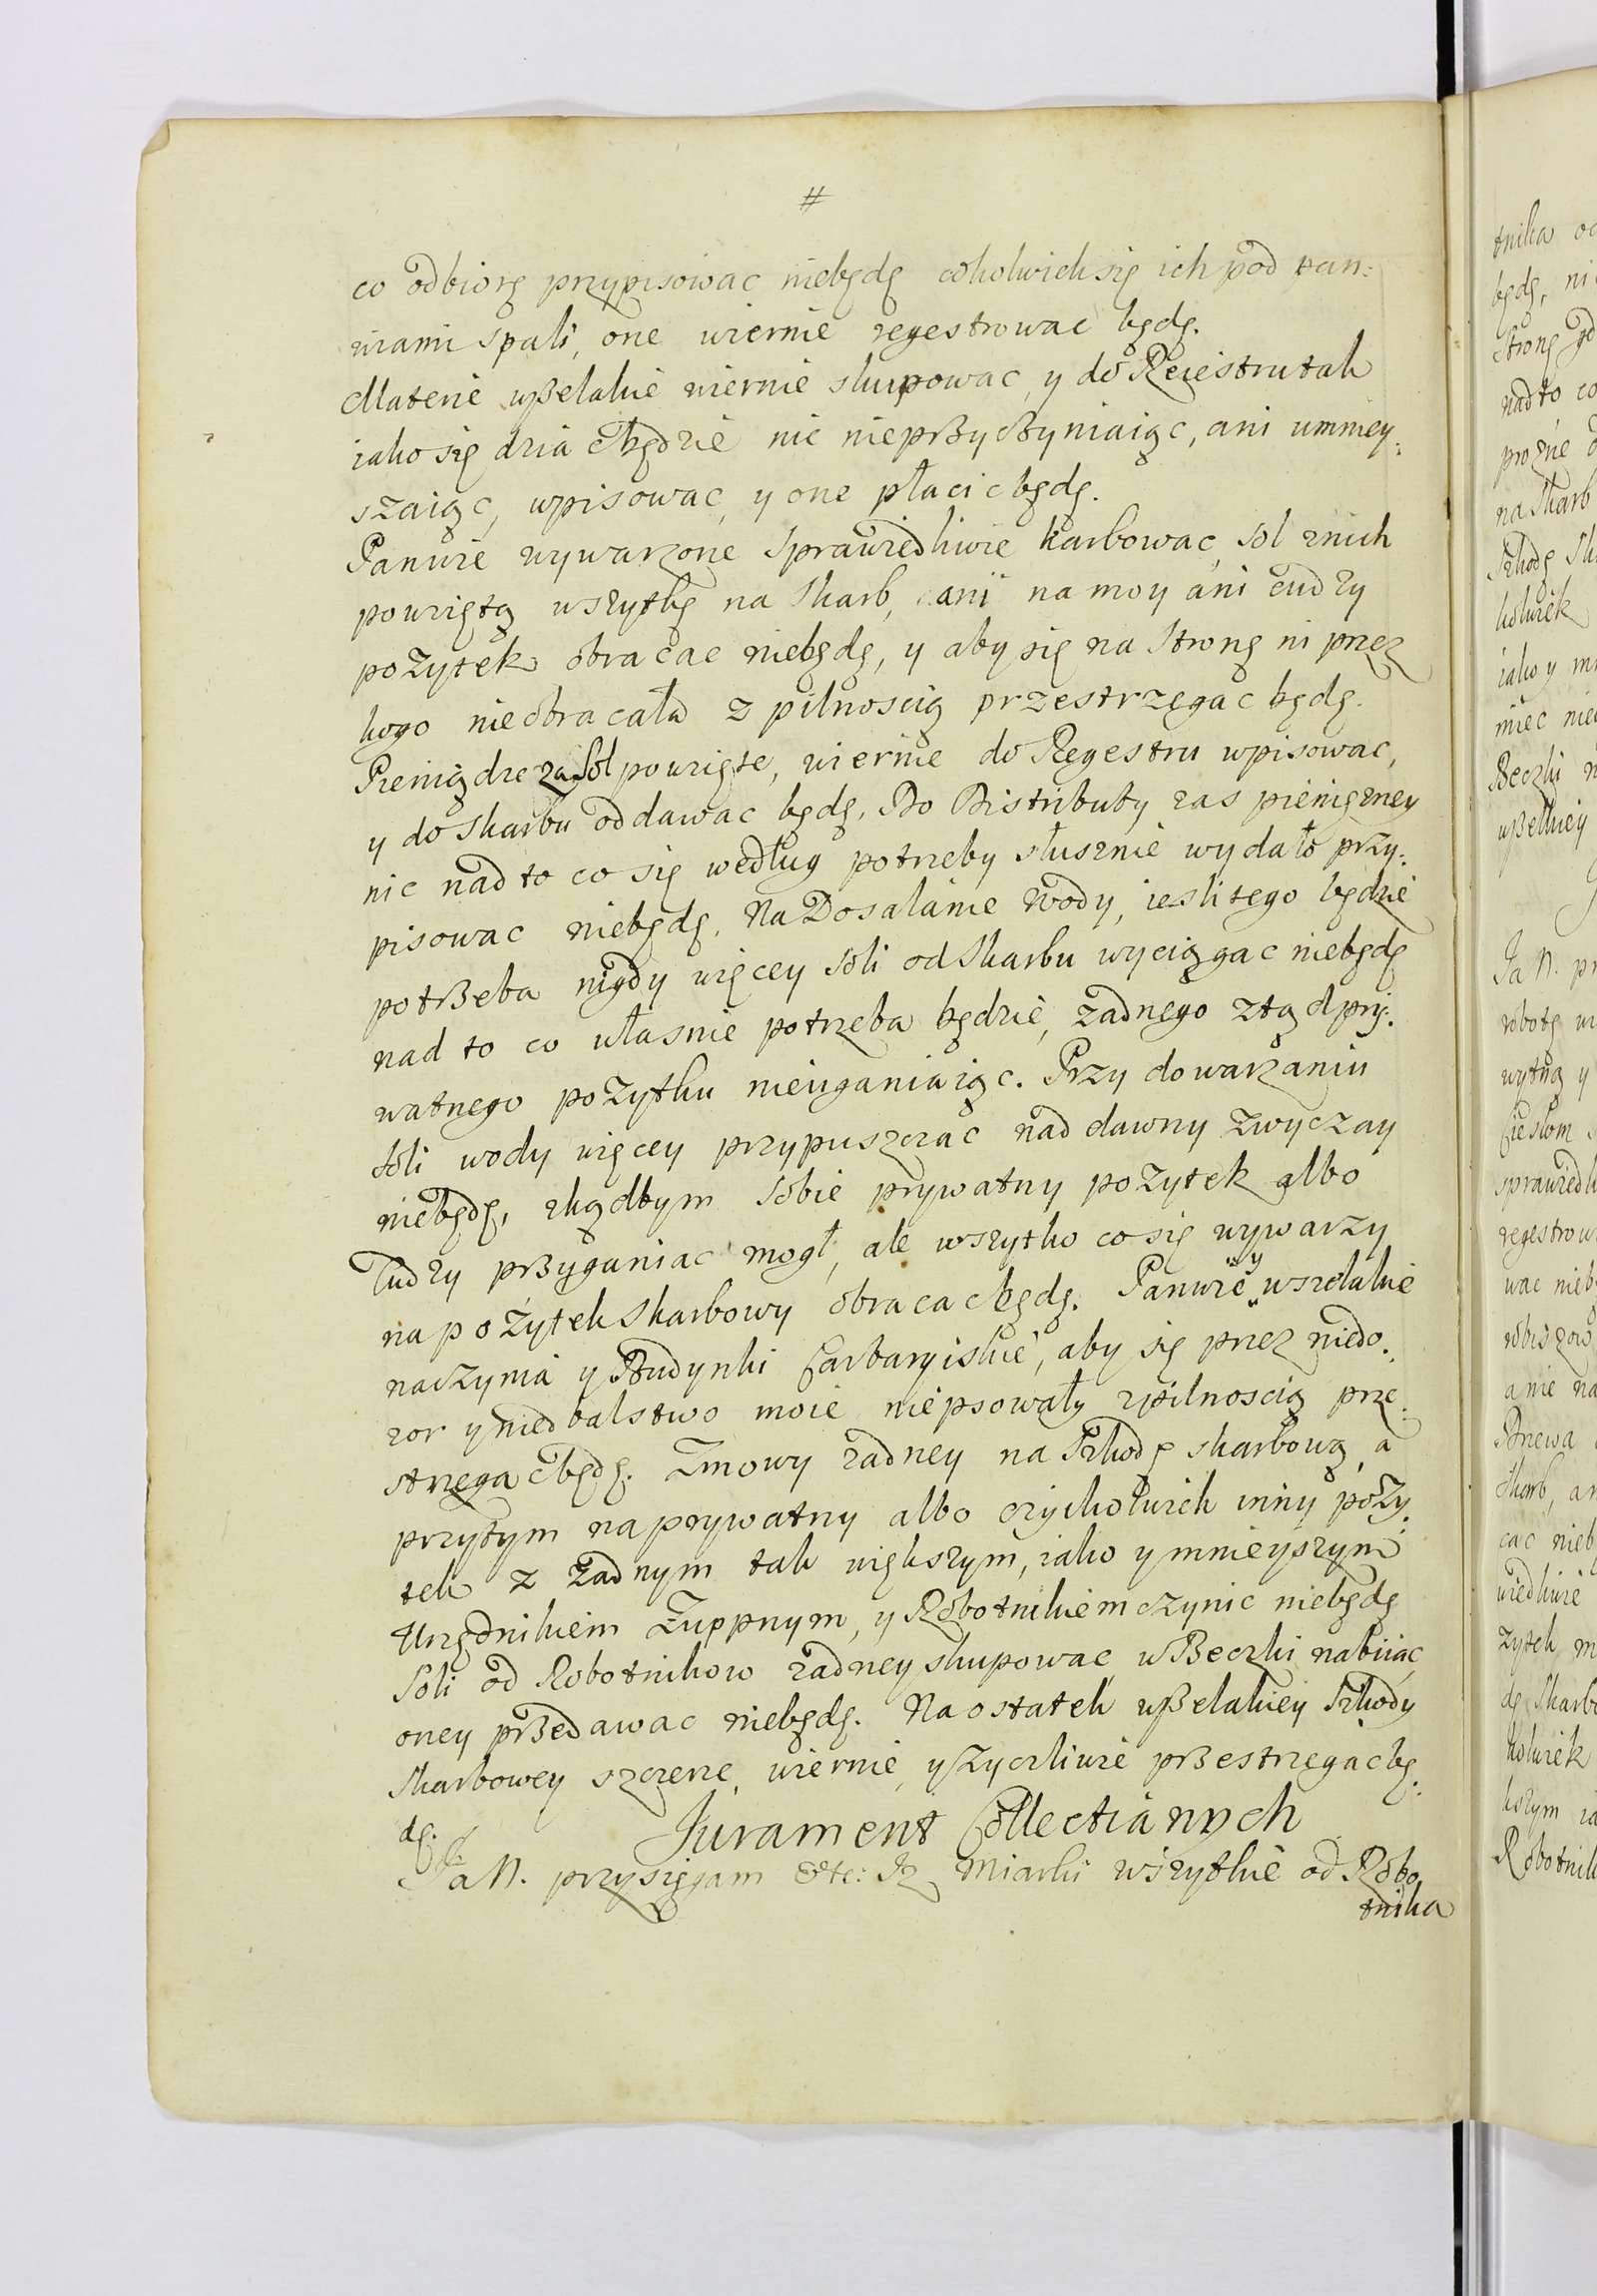 #
co odbiorę przypisowac niebędę cokolwiek się ich pod pan:
wiami spali, one wiernie regestrowac będę.
Materie wßelakie wiernie skupowac, y do Reiestru tak
iako się dziac będzie nic nieprzyczyniaiąc, ani ummiey:
szaiąc, wpisowac, y one płacic będę.
Panwie wywarzone sprawiedliwie karbowac, sol znich
powziętą wszytkę na Skarb, ani na moy ani cudzy
pożytek obracac niebędę, y aby się na stronę ni przez
kogo nieobracała z pilnoscią przestrzegac będę.
Pieniądze za Sol powzięte, wiernie do Regestru wpisowac,
y do Skarbu oddawac będę. Do Distributy zas pieniężney
nic nad to co się według potrzeby słusznie wydało przy:
pisowac niebędę. Na Dosalanie wody, iesli tego będzie
potrßeba nigdy więcey soli od Skarbu wyciągac niebędę
nad to co własnie potrzeba będzie, żadnego ztąd pry:
watnego pożytku nieuganiaiąc. Przy dowarzaniu
soli wody więcey przypuszczac nad dawny zwyczay
niebędę, zkądbym sobie prywatny pożytek albo
Cudzy przyganiac mogł, ale wszytko co się wywarzy
na pożytek Skarbowy obracac będę. Panwie y wszelakie
naczynia y Budynki Carbaryiskie, aby się przez niedo:
zor y niedbalstwo moie niepsowały zpilnoscią prze:
strzegac będę. Zmowy żadney na Szkodę skarbową, a
przytym na prywatny albo czyikolwiek inny poży:
tek z żadnym tak większym, iako y mnieyszym
Urzędnikiem Zuppnym, y Robotnikiem czynic niebędę
Soli od Robotnikow żadney skupowac, w Beczki nabiiac
oney przedawac niebędę. Na ostatek wßelakiey Szkody
Skarbowey szczerze, wiernie, y życzliwie przestrzegac bę:
dę.
Jurament Collectianych
Ja N. przysięgam &tc: Iż Miarki wszytkie od Robo
tnika